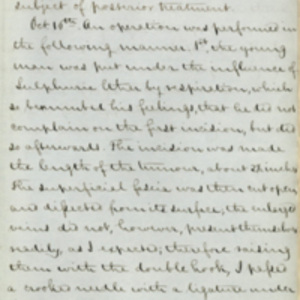 subject of posterior treatment.
Oct 16th. An operation was performed in
the following manner. 1st, the young
man was put under the influence of
Sulphuric Ether by respiration, which
so benumbed his feelings, that he did not
complain on the first incision, but did
so afterwards. The incision was made
the length of the tumour, about 2 inches
The superficial fascia was then cut open
and dissected from its surface, the enlarged
veins did not, however, present themselves
readily, as I expected; therefore raising
them with the double hook, I passed
a crooked needle with a ligature under